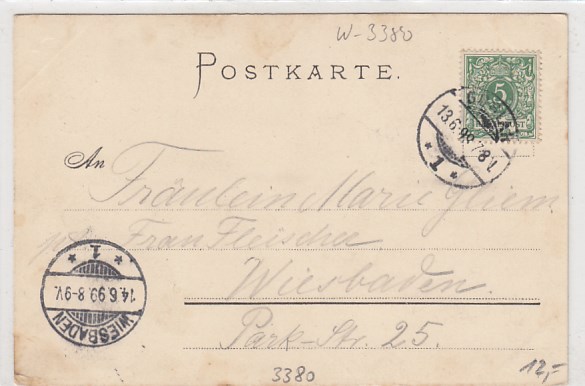 W-3380
POSTKARTE.
5
13.6.99.7-8V.
* 1 *
An
Fräulein Marie Gliem
Frau Fleischer
Wiesbaden.
Park-Str. 25.
* 1 *
14.6.99.8-9V.
WIESBADEN
3380
12,-